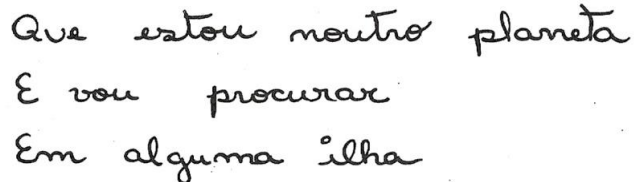 Que estou noutro planeta
E vou procurar
Em alguma ilha